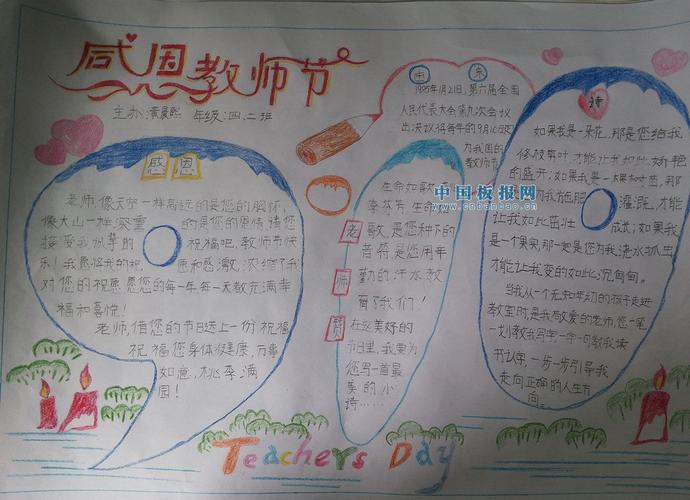 感恩教师节
主办:黄晨熙 年级:四.二班
感恩
老师,像天空一样高远的是您的胸怀,
像大山一样深重的是您的恩情,请您
接受我诚挚的祝福吧,教师节快
乐!我愿将我的祝愿和感激,浓缩了我
对您的祝愿愿您的每一年每一天都充满幸
福和喜悦!
老师,借您的节日送上一份祝福
祝福您身体健康,万事
如意,桃李满
园!
由来
1985年1月21日,第六届全国
人民代表大会第九次会议
出决议将每年的9月10日定
为我国的
教师节
老师赞
生命如歌
李芬芳,生命
歌,是您种下的
音符,是您用辛
勤的汗水教
育了我们!
在这美好的
节日里,我要为
您写一首最
美的小
诗……
诗
如果我是一朵花,那是您给我
修枝剪叶,才能让我如此娇艳
的盛开;如果我是一棵树苗,那
为我施肥灌溉,才能
让我如此茁壮成长;如果我
是一个果实,那一定是您为我浇水抓虫
才能让我变的如此沉甸甸。
当我从一个无知年幼的孩子走进
教室时,是我敬爱的老师,您一笔
一划教我写字一字一句教我读
书认字,一步一步引导我
走向正确的人生方
向。
中国板报网
www.cnbanbao.cn
Teachers Day